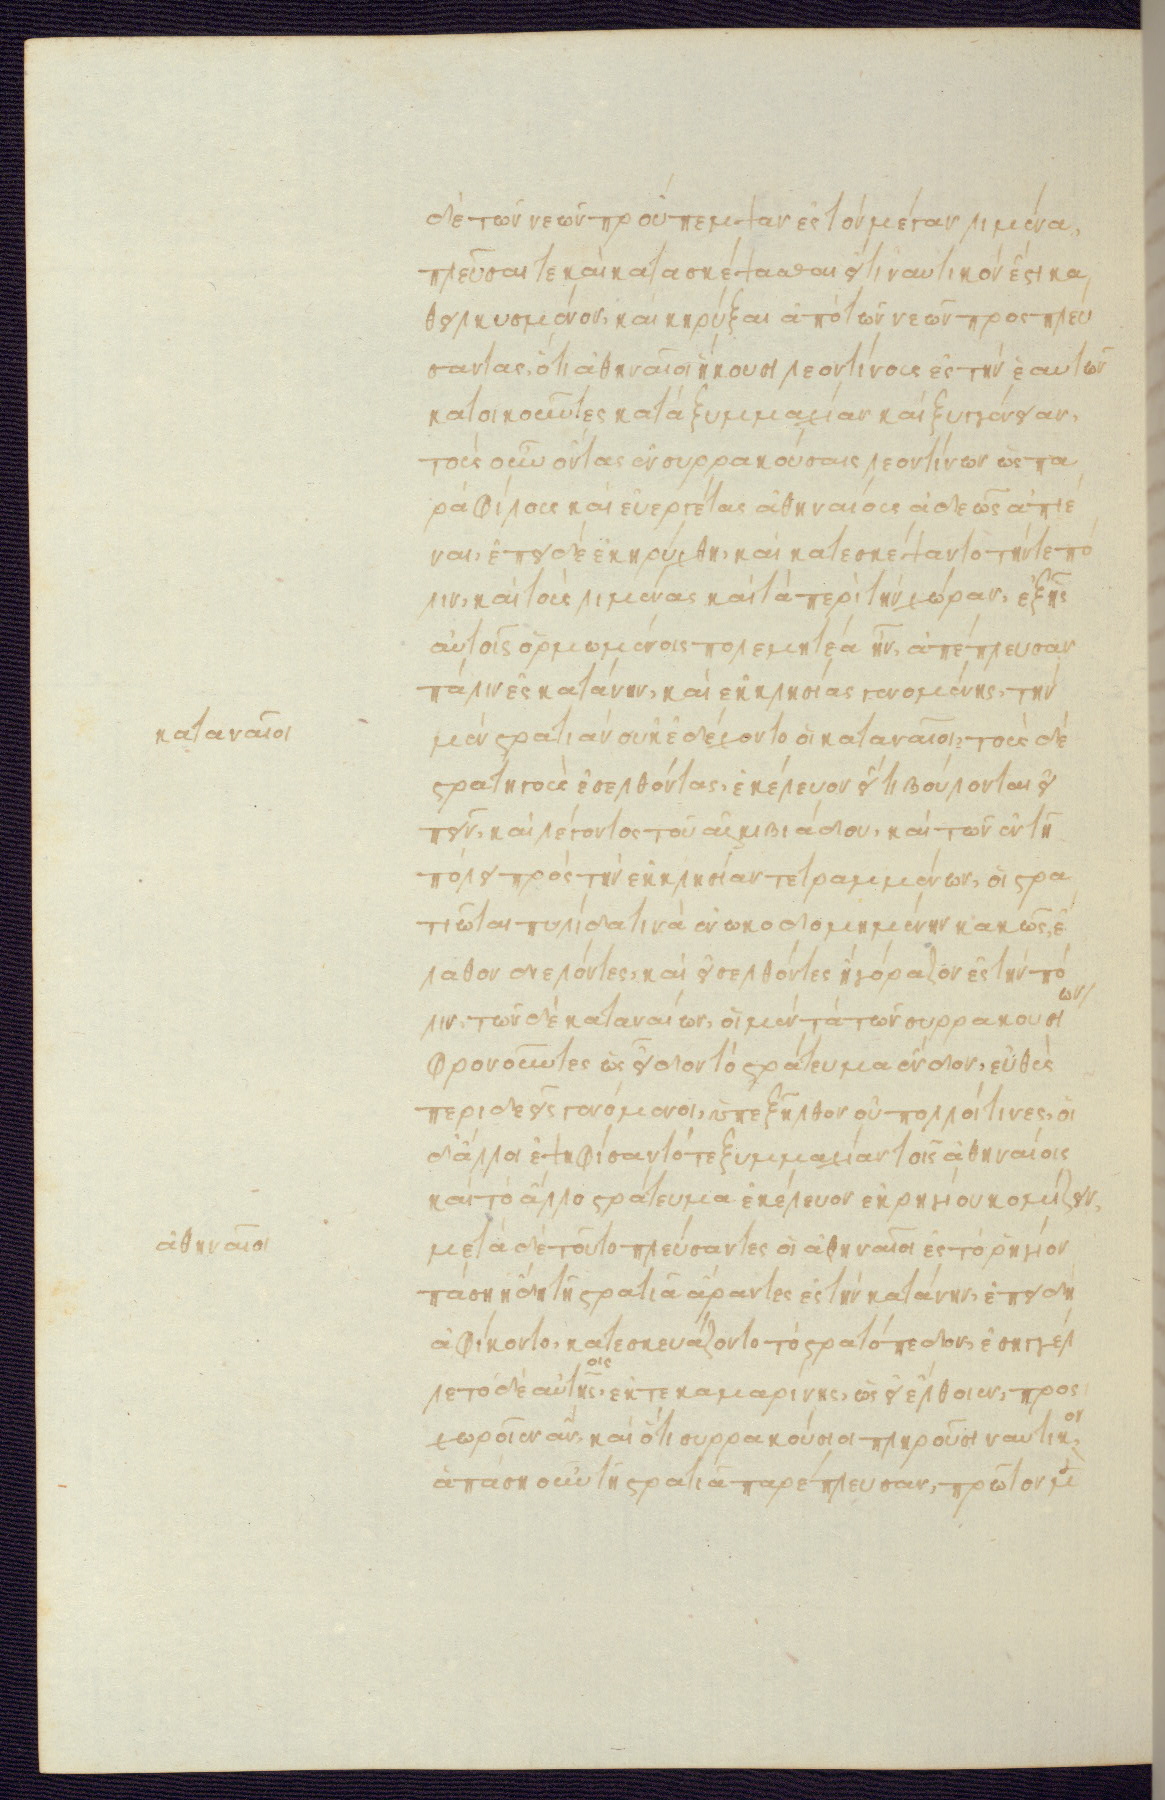 δὲ τῶν νεῶν προύπεμψαν ἐς τὸν μέγαν λιμένα,
πλεῦσαι τε καὶ κατασκέψασθαι εἴ τι ναυτικόν ἐστι κα
θειλκυσμένον, καὶ κηρύξαι ἀπὸ τῶν νεῶν προσπλεύ
σαντας, ὅτι ἀθηναῖοι ἥκουσι λεοντίνους ἐς τὴν ἑαυτῶν
κατοικοῦντες κατὰ ξυμμαχίαν καὶ ξυγγένειαν,
τοὺς οὖν ὄντας ἐν συρρακούσαις λεοντίνων ὡς πα
ρὰ φίλους καὶ εὐεργέτας ἀθηναίους ἀδεῶς ἀπιέ
ναι, ἐπεὶ δὲ ἐκηρύχθη, καὶ κατεσκέψαντο τήν τε πό
λιν, καὶ τοὺς λιμένας καὶ τὰ περὶ τὴν χώραν, ἐξ ἧς
αὐτοῖς ὁρμωμένοις πολεμητέα ἦν, ἀπέπλευσαν
πάλιν ἐς κατάνην, καὶ ἐκκλησίας γενομένης, τὴν
καταναῖοι
μὲν στρατιὰν οὐκ ἐδέχοντο οἱ καταναῖοι, τοὺς δὲ
στρατηγοὺς ἐσελθόντας, ἐκέλευον εἴ τι βούλονται εἰ
πεῖν, καὶ λέγοντος τοῦ ἀλκιβιάδου, καὶ τῶν ἐν τῇ
πόλει πρὸς τὴν ἐκκλησίαν τετραμμένων, οἱ στρα
τιῶται πυλίδα τινὰ ἐνωκοδομημένην κακῶς, ἔ
λαθον διελόντες, καὶ εἰσελθόντες ἠγόραζον ἐς τὴν πό
λιν, τῶν δὲ καταναίων, οἱ μὲν τὰ τῶν συρρακουσίων
φρονοῦντες ὡς εἶδον τὸ στράτευμα ἔνδον, εὐθὺς
περιδεεῖς γενόμενοι, ὑπεξῆλθον οὐ πολλοί τινες, οἱ
δ' ἄλλοι ἐψηφίσαντό τε ξυμμαχίαν τοῖς ἀθηναίοις
καὶ τὸ ἄλλο στράτευμα ἐκέλευον ἐκ ῥηγίου κομίζειν,
ἀθηναῖοι
μετὰ δὲ τοῦτο πλεύσαντες οἱ ἀθηναῖοι ἐς τὸ ῥήγιον
πάσῃ ἤδη τῇ στρατιᾷ ἄραντες ἐς τὴν κατάνην, ἐπειδὴ
ἀφίκοντο, κατεσκευάζοντο τὸ στρατόπεδον, ἐσηγγέλ
λετο δὲ αὐτοῖς, ἔκ τε καμαρίνης, ὡς εἰ ἔλθοιεν, προσ
χωροῖεν ἂν, καὶ ὅτι συρρακούσιοι πληροῦσι ναυτικόν,
ἁπάσῃ οὖν τῇ στρατιᾷ παρέπλευσαν, πρῶτον μὲ